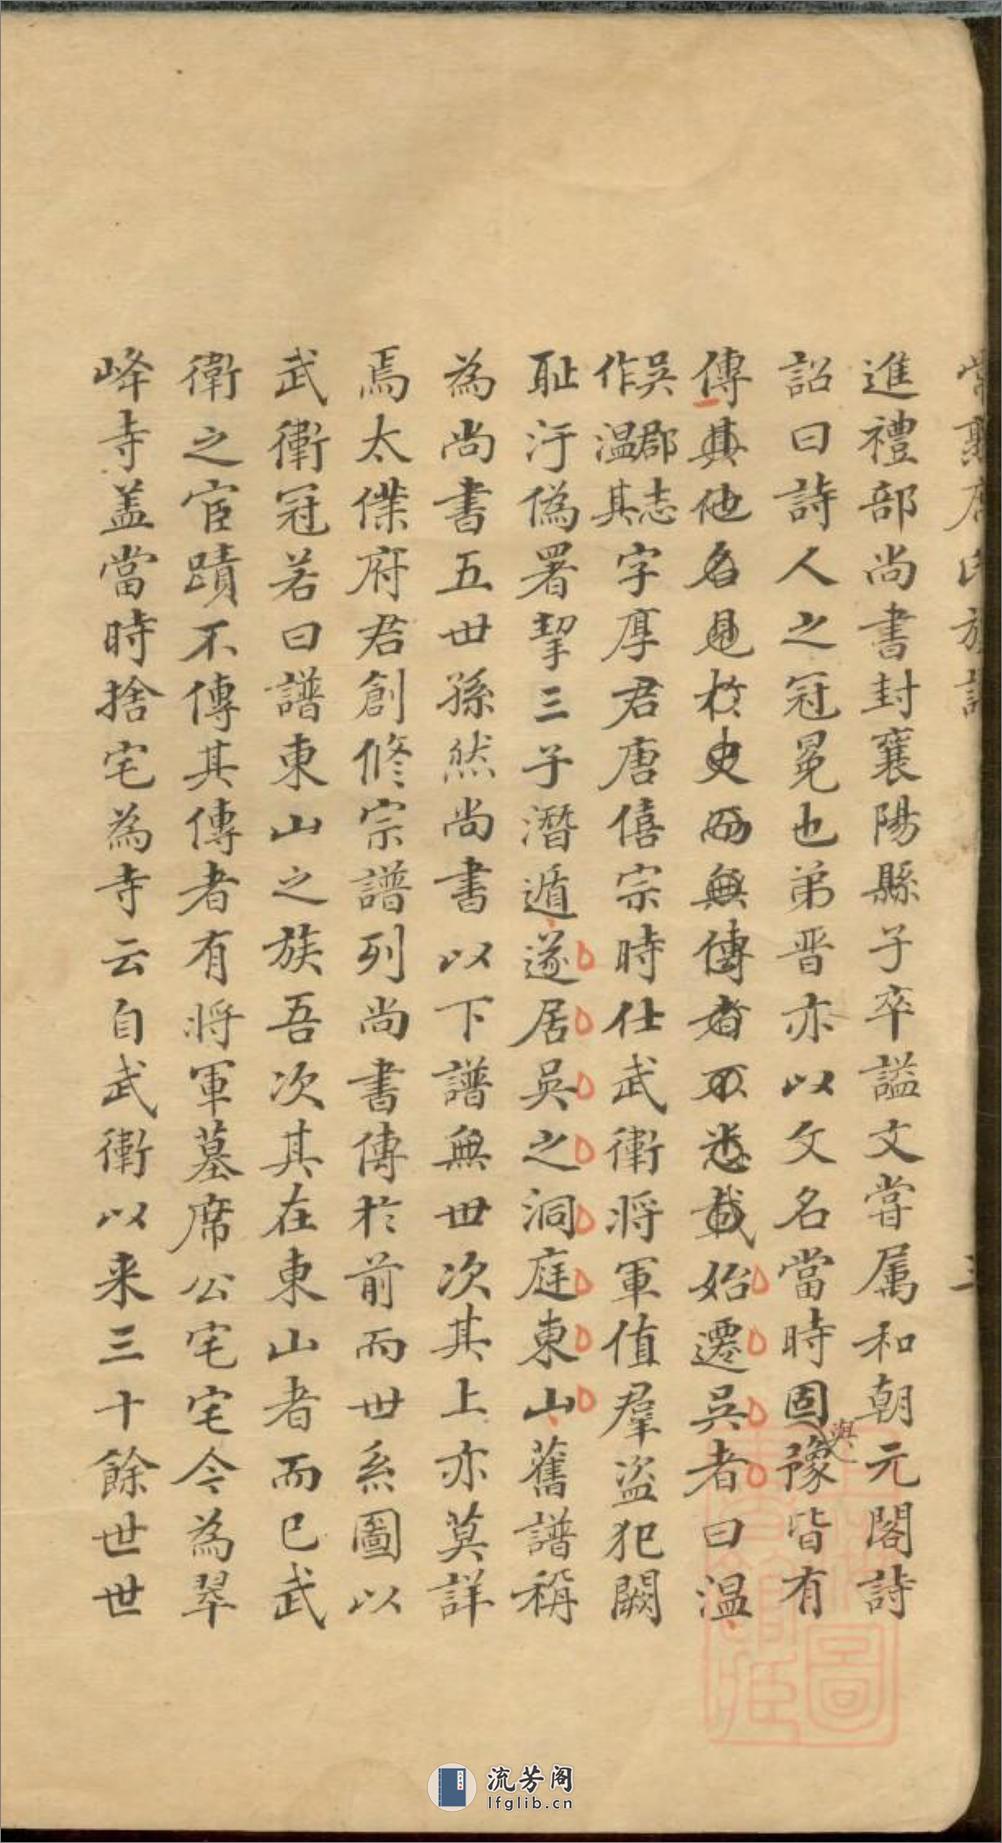 常熟席氏族譜 三
進禮部尚書封襄陽縣子卒謚文嘗属和朝元閣詩
詔曰詩人之冠冕也弟晋亦以文名當時固豫皆有
與
傳其他名見於史而無傳者不悉載始遷吳者曰温
吳郡志
作温其
字厚君唐僖宗時仕武衛将軍值羣盗犯闕
耻汙偽署挈三子潛遁遂居吳之洞庭東山舊譜稱
為尚書五世孫然尚書以下譜無世次其上亦莫詳
焉太僕府君創修宗譜列尚書傳於前而世系圖以
武衛冠若曰譜東山之族吾次其在東山者而已武
衛之宦蹟不傳其傳者有将軍墓席公宅宅今為翠
峰寺盖當時捨宅為寺云自武衛以来三十餘世世
圖
流芳阁
lfglib.cn